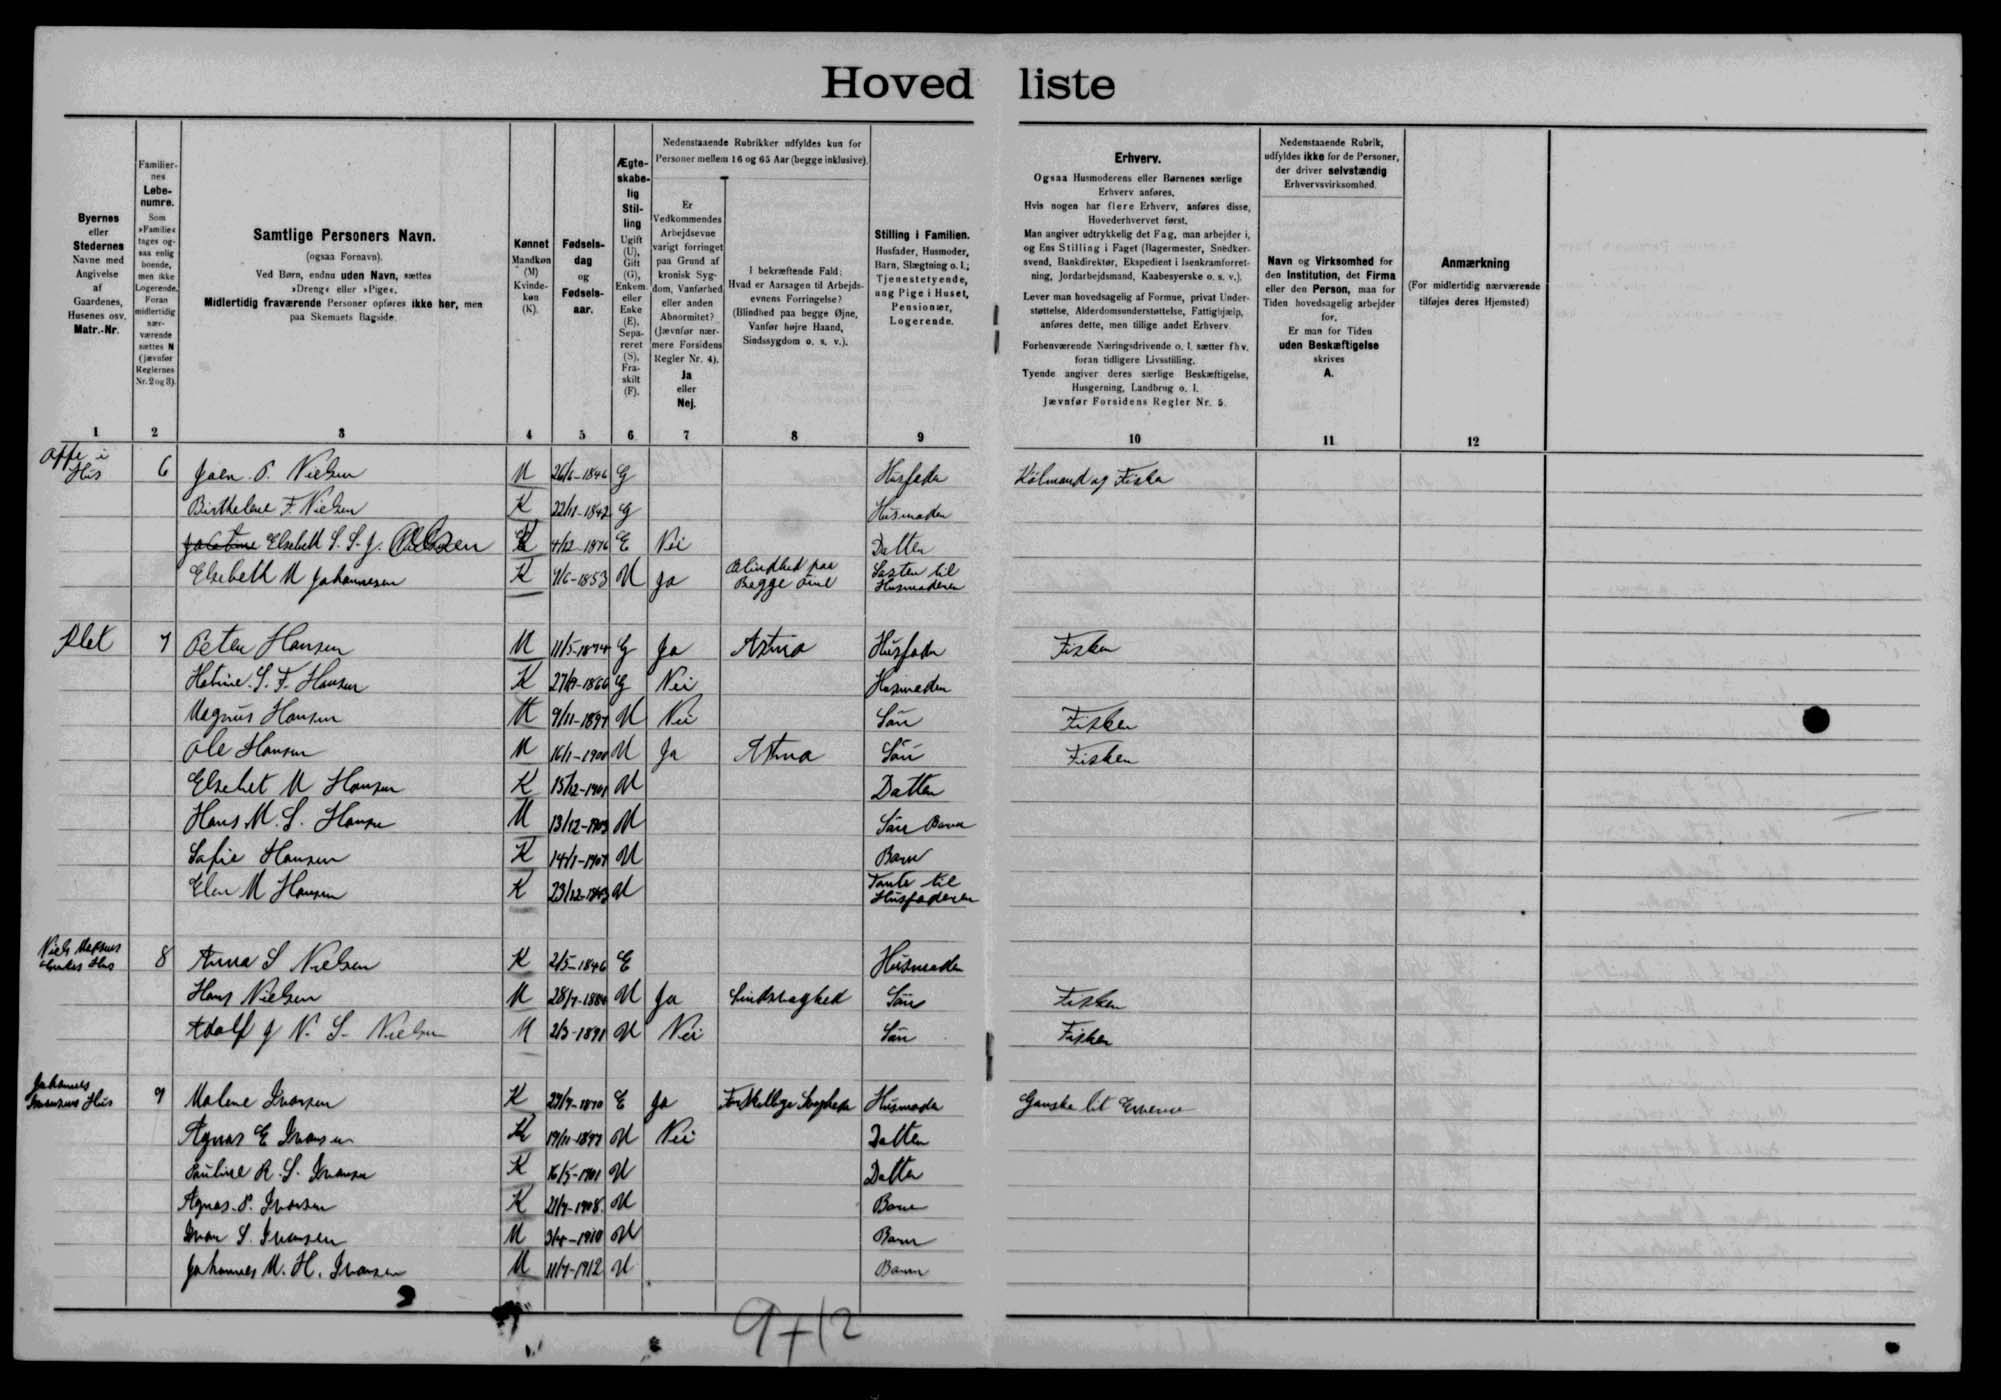 Hoved liste
Byernes
eller
Stedernes
Navne med
Angivelse
af
Gaardenes,
Husenes osv.
Matr.-Nr.
Familier-
nes
Løbe-
numre.
Som
»Familie«
tages og-
saa enlig
boende,
men ikke
Logerende.
Foran
midlertidig
nær-
værende
sættes N
(jævnfør
Reglernes
Nr. 2 og 3).
Samtlige Personers Navn.
(ogsaa Fornavn).
Ved Børn, endnu uden Navn, sættes
»Dreng« eller »Pige«.
Midlertidig fraværende Personer opføres ikke her, men
paa Skemaets Bagside.
Kønnet
Mandkøn
(M)
Kvinde-
køn
(K).
Fødsels-
dag
og
Fødsels-
aar.
Ægte-
skabe-
lig
Stil-
ling
Ugift
(U),
Gift
(G),
Enkem.
eller
Enke
(E),
Sepa-
reret
(S),
Fra-
skilt
(F).
Nedenstaaende Rubrikker udfyldes kun for
Personer mellem 16 og 65 Aar (begge inklusive).
Er
Vedkommendes
Arbejdsevne
varigt forringet
paa Grund af
kronisk Syg-
dom, Vanførhed
eller anden
Abnormitet?
(Jævnfør nær-
mere Forsidens
Regler Nr. 4).
Ja
eller
Nej.
I bekræftende Fald:
Hvad er Aarsagen til Arbejds-
evnens Forringelse?
(Blindhed paa begge Øjne,
Vanfør højre Haand,
Sindssygdom o. s. v.).
Stilling i Familien.
Husfader, Husmoder,
Barn, Slægtning o. l.;
Tjenestetyende,
ung Pige i Huset,
Pensionær,
Logerende.
Erhverv.
Ogsaa Husmoderens eller Børnenes særlige
Erhverv anføres.
Hvis nogen har flere Erhverv, anføres disse,
Hovederhvervet først.
Man angiver udtrykkelig det Fag, man arbejder i,
og Ens Stilling i Faget (Bagermester, Snedker-
svend, Bankdirektør, Ekspedient i Isenkramforret-
ning, Jordarbejdsmand, Kaabesyerske o. s. v.).
Lever man hovedsagelig af Formue, privat Under-
støttelse, Alderdomsunderstøttelse, Fattighjælp,
anføres dette, men tillige andet Erhverv.
Forhenværende Næringsdrivende o. l. sætter fhv.
foran tidligere Livsstilling.
Tyende angiver deres særlige Beskæftigelse,
Husgerning, Landbrug o. l.
Jævnfør Forsidens Regler Nr. 5.
Nedenstaaende Rubrik,
udfyldes ikke for de Personer,
der driver selvstændig
Erhvervsvirksomhed.
Navn og Virksomhed for
den Institution, det Firma
eller den Person, man for
Tiden hovedsagelig arbejder
for.
Er man for Tiden
uden Beskæftigelse
skrives
A.
Anmærkning
(For midlertidig nærværende
tilføjes deres Hjemsted)
1 2 3 4 5 6 7 8 9 10 11 12
Hus 6 Joen P. Nielsen M 26/6-1846 G Husfader Kølmand og Fisker
Birthelene F. Nielsen K 22/11-1842 G Husmoder
Elsebeth S. S. J. Olsen K 4/12 1876 E Nei Datter
Elsebeth M Johannesen K 9/6-1853 U Ja Blindhed paa Begge øine Søster til Husmoderen
7 Peter Hansen M 11/5-1874 G Ja Astma Husfader Fisker
S. F. Hansen K 27/9-1866 G Nei Husmoder
Magnus Hansen M 9/11-1897 U Nei Søn Fisker
Ole Hansen M 16/1-1900 U Ja Astma Søn Fisker
Elsebet M Hansen K 15/12-1901 U Datter
Hans M. S. Hansen M 13/12-1903 U Søn Barn
Sofie Hansen K 14/1-1907 U Barn
Elen M Hansen K 23/12-1843 U Tante til Husfaderen
Niels Hus 8 Anna S Nielsen K 2/5-1846 E Husmoder
Hans Nielsen M 28/7-1880 U Ja Sindsvaghed Søn Fisker
Adolf J N. S. Nielsen M 2/3-1891 U Nei Søn Fisker
Johannes Hus 9 Malene Ivarsen K 23/7-1870 E Ja Husmoder Ganske lit
Agnas E Ivarsen K 19/11-1897 U Nei Datter
Pauline R. S. Ivarsen K 16/5-1901 U Datter
Agnas. P. Ivarsen K 21/7-1908 U Barn
Ivar S. Ivarsen M 3/4-1910 U Barn
Johannes M. H. Ivarsen M 11/7-1912 U Barn
9+12